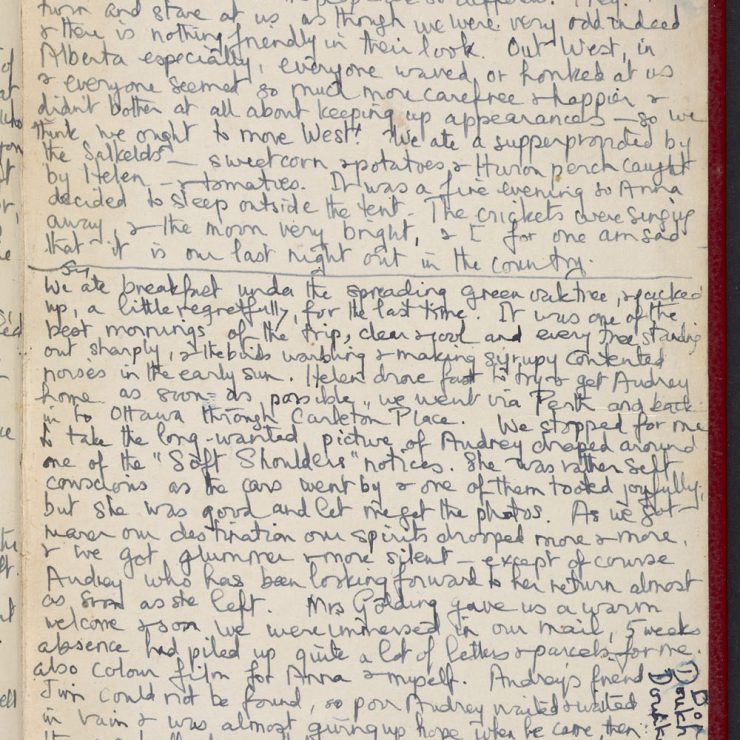 turn and stare at us as though we were very odd indeed
& there is nothing friendly in their look. Out West, in
Alberta especially, everyone waved, or honked at us
& everyone seemed so much more carefree & happier &
didn't bother at all about keeping up appearances — so we
think we ought to move West! We ate a supper provided by
the Salkelds — sweetcorn & potatoes, & Huron perch caught
by Helen — & tomatoes. It was a fine evening so Anna
decided to sleep outside the tent. The crickets were singing
away, & the moon very bright, & I for one am sad
that it is our last night out in the country.
We ate breakfast under the spreading green oak tree, & packed
up, a little regretfully, for the last time. It was one of the
best mornings of the trip, clear & cool and every tree standing
out sharply, & the birds warbling & making syrupy contented
noises in the early sun. Helen drove fast to try & get Audrey
home as soon as possible, we went via Perth and back
in to Ottawa through Carleton Place. We stopped for me
to take the long-wanted picture of Audrey draped around
one of the "Soft Shoulders" notices. She was rather self
conscious as the cars went by & one of them tooted joyfully,
but she was good and let me get the photos. As we got
nearer our destination our spirits dropped more & more,
& we got glummer & more silent — except of course
Audrey who has been looking forward to her return almost
as soon as she left. Mrs Golding gave us a warm
welcome & soon we were immersed in our mail, 5 weeks
absence had piled up quite a lot of letters & parcels for me.
also colour film for Anna & myself. Audrey's friend
Jim could not be found, so poor Audrey waited & waited
in vain & was almost giving up hope when he came, then